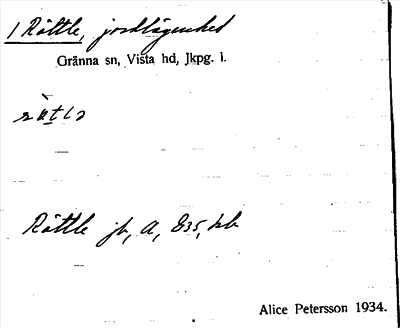 1 Råttle, jordlägenhet
Gränna sn, Vista hd, Jkpg. l.
Råttle jb, A, E35, kb
Alice Petersson 1934.